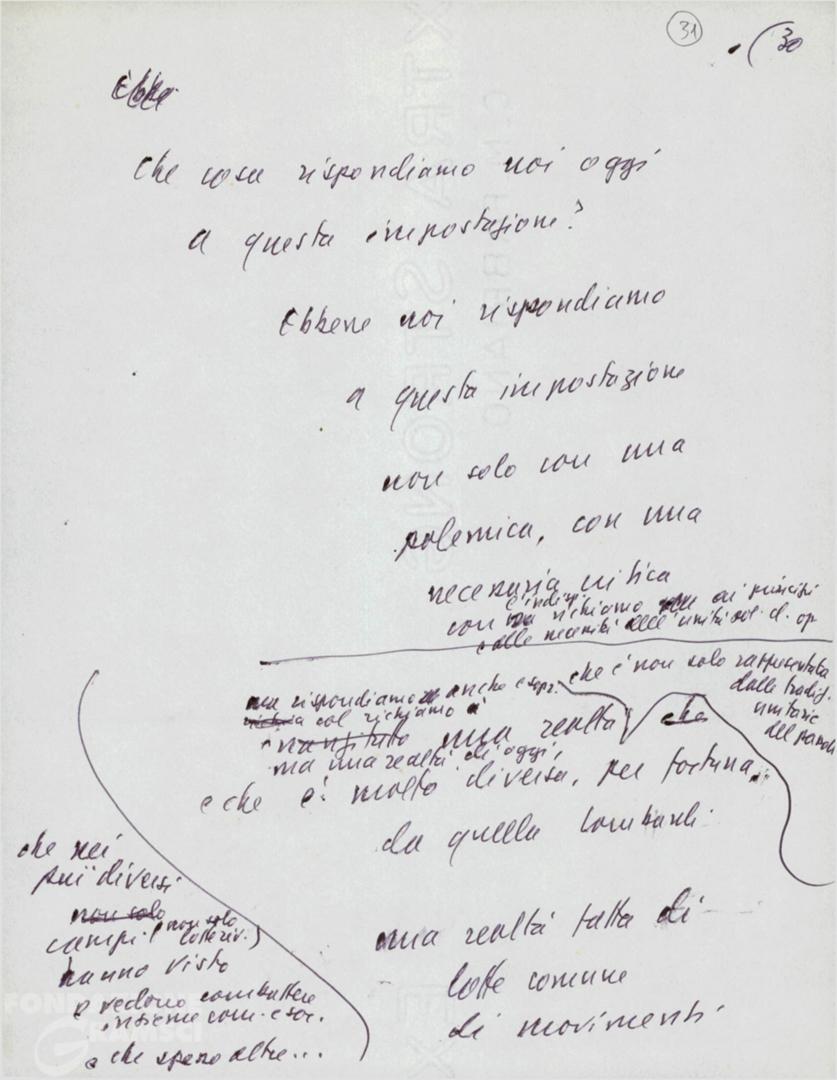 31
(30
Ebbe
che cosa rispondiamo noi oggi
a questa impostazione?
Ebbene noi rispondiamo
a questa impostazione
non solo con una
polemica, con una
necessaria critica
con richiamo ai principi
e alle necessità dell'unità
ma rispondiamo anche e sopr.
che è non solo rappresentata
dalle tradiz.
unitarie
del
col richiamo a
una realtà che
ma una realtà di oggi,
e che è molto diversa, per fortuna,
da quella
una realtà fatta di
lotte comune
di movimenti
che nei
più diversi
non solo
campi (non solo
hanno visto
e vedono combattere
insieme com. e soc.
e che spesso altre...
FONDAZIONE
GRAMSCI